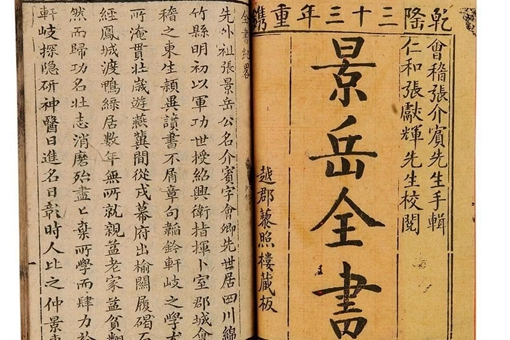 乾隆三十三年重鐫
會稽張介賓先生手輯
仁和張獻輝先生校閱
景岳全書
越郡藜照樓藏板
全書紀畧
先外祖張景岳公名介賓字會卿先世居四川綿
竹縣明初以軍功世授紹興衛指揮卜室郡城會
稽之東生穎異讀書不屑章句韜鈐軒岐之學尤
所淹貫壯歲遊燕冀間從戎幕府出榆關履碣石
經鳳城渡鴨綠居數年無所就親益老家益貧翻
然而歸功名壯志消磨殆盡々棄所學而肆力於
軒岐探隱研神醫日進名日彰時人比之仲景東